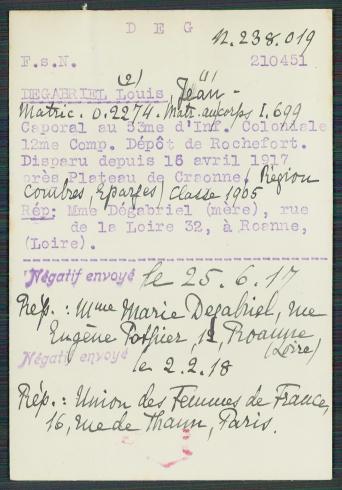 D E G
N. 238.019
F.s.N. 210451
(e) (i)
DEGABRIEL Louis, Jean -
Matric. 0.2274. Matr. au corps I.699
Caporal au 53me d'Inf. Coloniale
12me Comp. Dépôt de Rochefort.
Disparu depuis 16 avril 1917
près Plateau de Craonne, Région
Combres, Eparges) Classe 1905
Rép: Mme Dégabriel (mère), rue
de la Loire 32, à Roanne,
(Loire).
Négatif envoyé le 25.6.17
Rép. : Mme Marie Degabriel, rue
Eugène Pothier, 12, Roanne
(Loire)
Négatif envoyé le 2.2.18
Rép. : Union des Femmes de France,
16, rue de Thann, Paris.